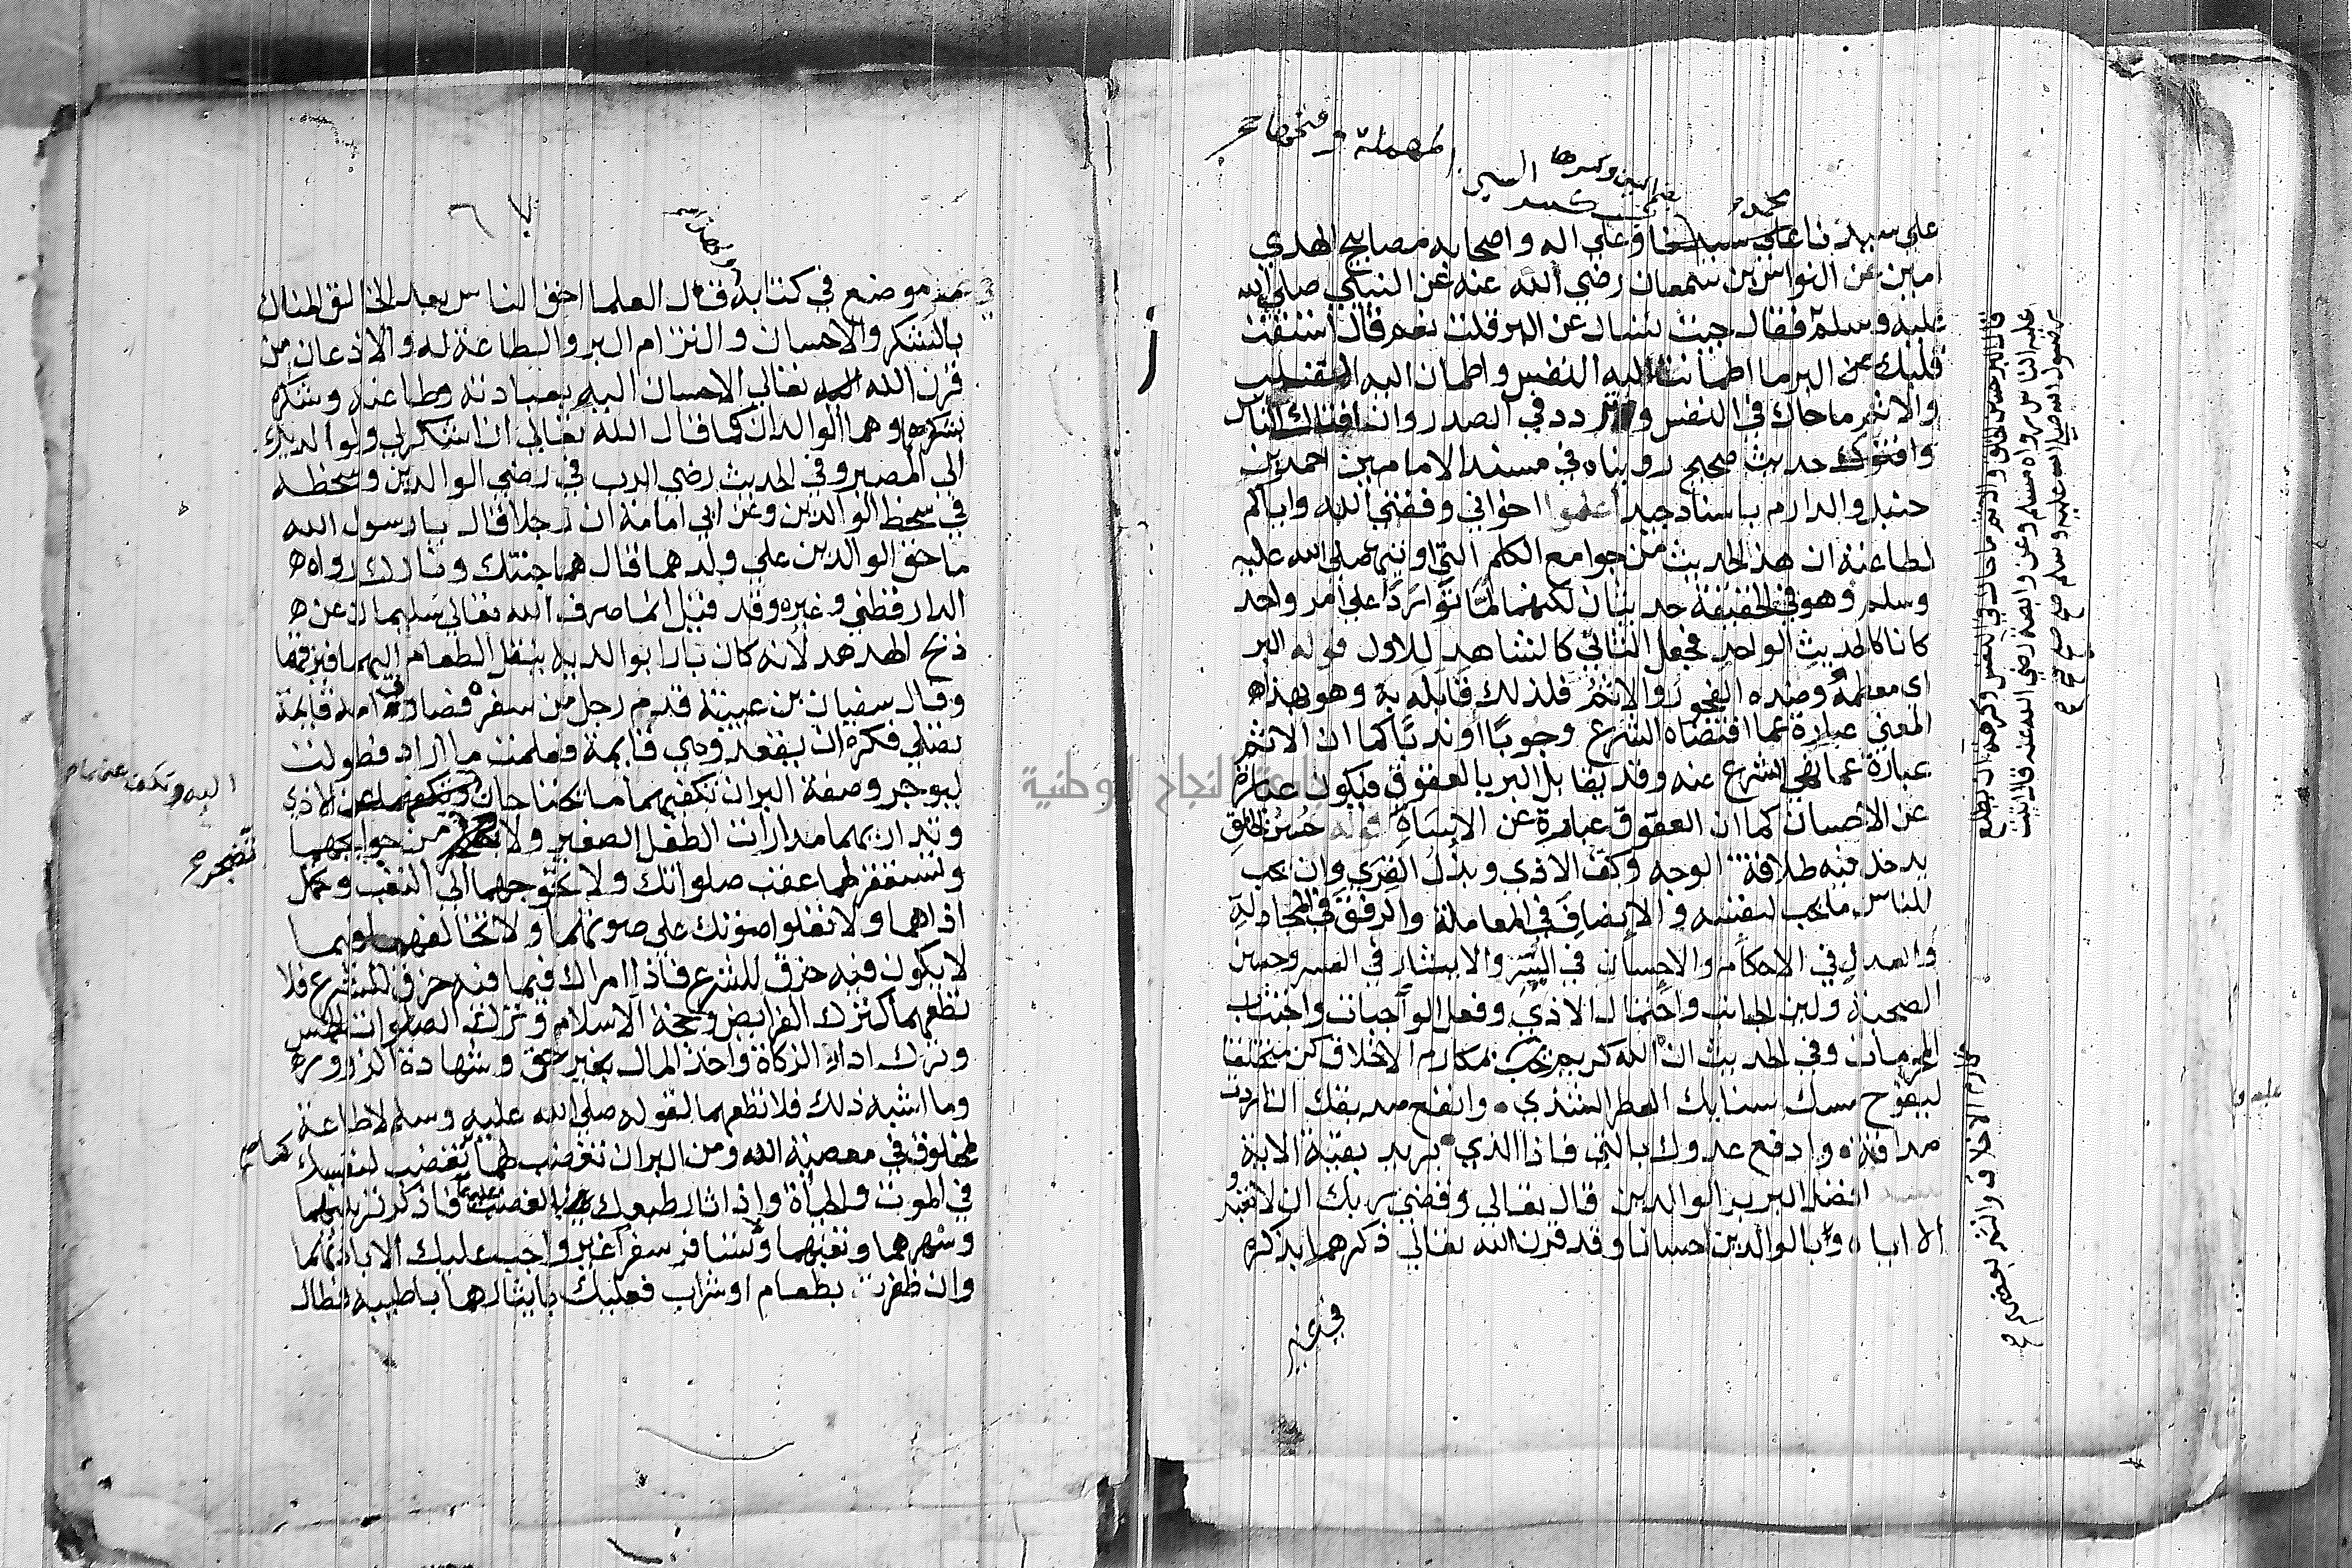 المهملة وفتحها صح
بفتح السين وكسرها
محمد
على سيدنا وعلى اله واصحابه مصابيح الهدي
امين عن النواس بن سمعان رضي الله عنه عن النبي صلي الله
عليه وسلم فقال جيت تسال عن البر قلت نعم قال استفت
قلبك البر ما اطمانت اليه النفس واطمان اليه القلب
والاثم ما حاك في النفس وتردد في الصدر وان افتاك الناس
وافتوك حديث صحيح رويناه في مسند الامامين احمد بن
حنبل والدارم باسناد جيد اعلموا اخواني وفقني الله واياكم
لطاعته ان هذ الحديث من جوامع الكلم التي اوتيها صلي الله عليه
وسلم وهو في الحقيقة حديثان لكنهما لما تواردا على امر واحد
كانا كالحديث الواحد فجعل الثاني كالشاهد للاول قوله البر
اي معظمه وضده الفجور والاثم فلذلك قابله به وهو بهذا
المعني عبارة عما اقتضاه الشرع وجوبا اوندبا كما ان الاثم
عبارة عما نهي الشرع عنه وقد يقابل البر بالعقوق فيكون عبارة
عن الاحسان كما ان العقوق عبارة عن الاساة قوله حسن الخلق
يدخل فيه طلاقة الوجه وكف الاذي وبذل القري وان يحب
للناس ما يحب لنفسه والانصاف في المعاملة والرفق في المجادلة
والعدل في الاحكام والاحسان في اليسر والايثار في العسر وحسن
الصحبة ولين الجانب واحتمال الاذي وفعل الواجبات واجتناب
المحرمات وفي الحديث ان الله كريم يحب مكارم الاخلاق كن متخلقا
ليفوح مسك سنابك العطر الشذي وانفع صديقك ان اردت
صداقة وادفع عدوك بالتي فاذا الذي يريد بقية الاية
افضل البر بر الوالدين قال تعالي وقضي ربك ان لا تعبدو
الا اياه وبالوالدين احسانا وقد قرن الله تعالي ذكرهما بذكره
في غير
قال البر حسن الخلق والاثم ما حاك في النفس وكرهت ان يطلع
عليه الناس رواه مسلم وعن وابصة رضي الله عنه قال اتيت
رسول الله صلي الله عليه وسلم صح صح صح
٦٧
في غير موضع في كتابه قال العلما احق الناس بعد الخالق المنان
بالشكر والاحسان والتزام البر والطاعة له والاذعان من
قرن الله تعالي الاحسان اليه بعبادته وطاعته وشكره
بشكره وهما الوالدان كما قال الله تعالي ان اشكر لي ولوالديك
الي المصير وفي الحديث رضي الرب في رضي الوالدين وسخطه
في سخط الوالدين وعن ابي امامة ان رجلا قال يا رسول الله
ما حق الوالدين علي ولدهما قال هما جنتك ونارك رواه
الدارقطني وغيره وقد قيل انما صرف الله تعالي سليمان عن
ذبح الهدهد لانه كان بارا بوالديه ينقل الطعام اليهما فيزقهما
وقال سفيان بن عيينة قدم رجل من سفر فصادف امه قايمة
تصلي فكره ان يقعد وهي قايمة فعلمت ما اراد فطولت
ليوجر وصفة البر ان تكفيهما ما يحتاجان الاذي
وتداريهما مدارات الطفل الصغير ولا من حوايجهما
وتستغفر لهما عقب صلواتك ولا تحوجهما الي التعب وتحمل
اذاهما ولا تعلوا صوتك علي صوتهما ولا تخالفهما فيما
لا يكون فيه خرق للشرع فاذا امراك فيما فيه خرق للشرع فلا
تطعهما كترك الفرايض وحجة الاسلام وترك الصلوات الخمس
وترك اداء الزكاة واخذ المال بغير حق وشهادة الزور
وما اشبه ذلك فلا تطعهما لقوله صلي الله عليه وسلم لا طاعة
لمخلوق في معصية الله ومن البر ان تغضب لهما تغضب لنفسك
في الموت والحياة واذا ثار طبعك بالغضب عليهما فاذكر تربيتهما
وسهرهما وتعبهما وتسافر سفرا غير واجب عليك الا باذنهما
وان ظفرت بطعام او شراب فعليك بايثارهما باطيبه فطال
اليه وتكف عنهما صح
تضجر صح
كما صح